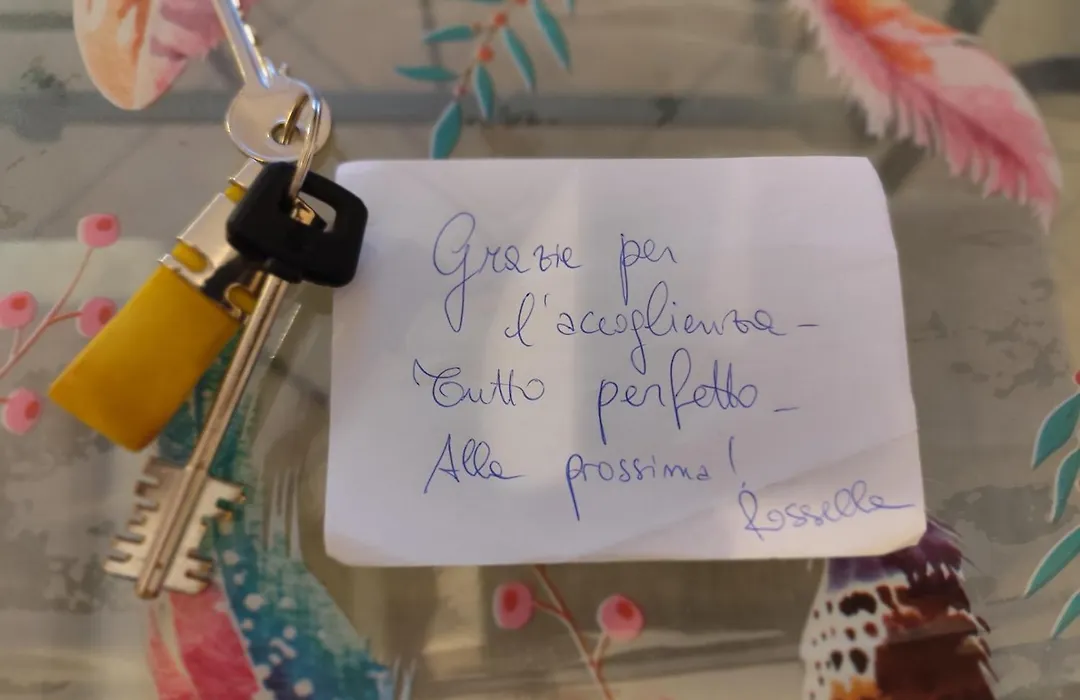 Grazie per
l'accoglienza -
Tutto perfetto -
Alla prossima!
Rossella